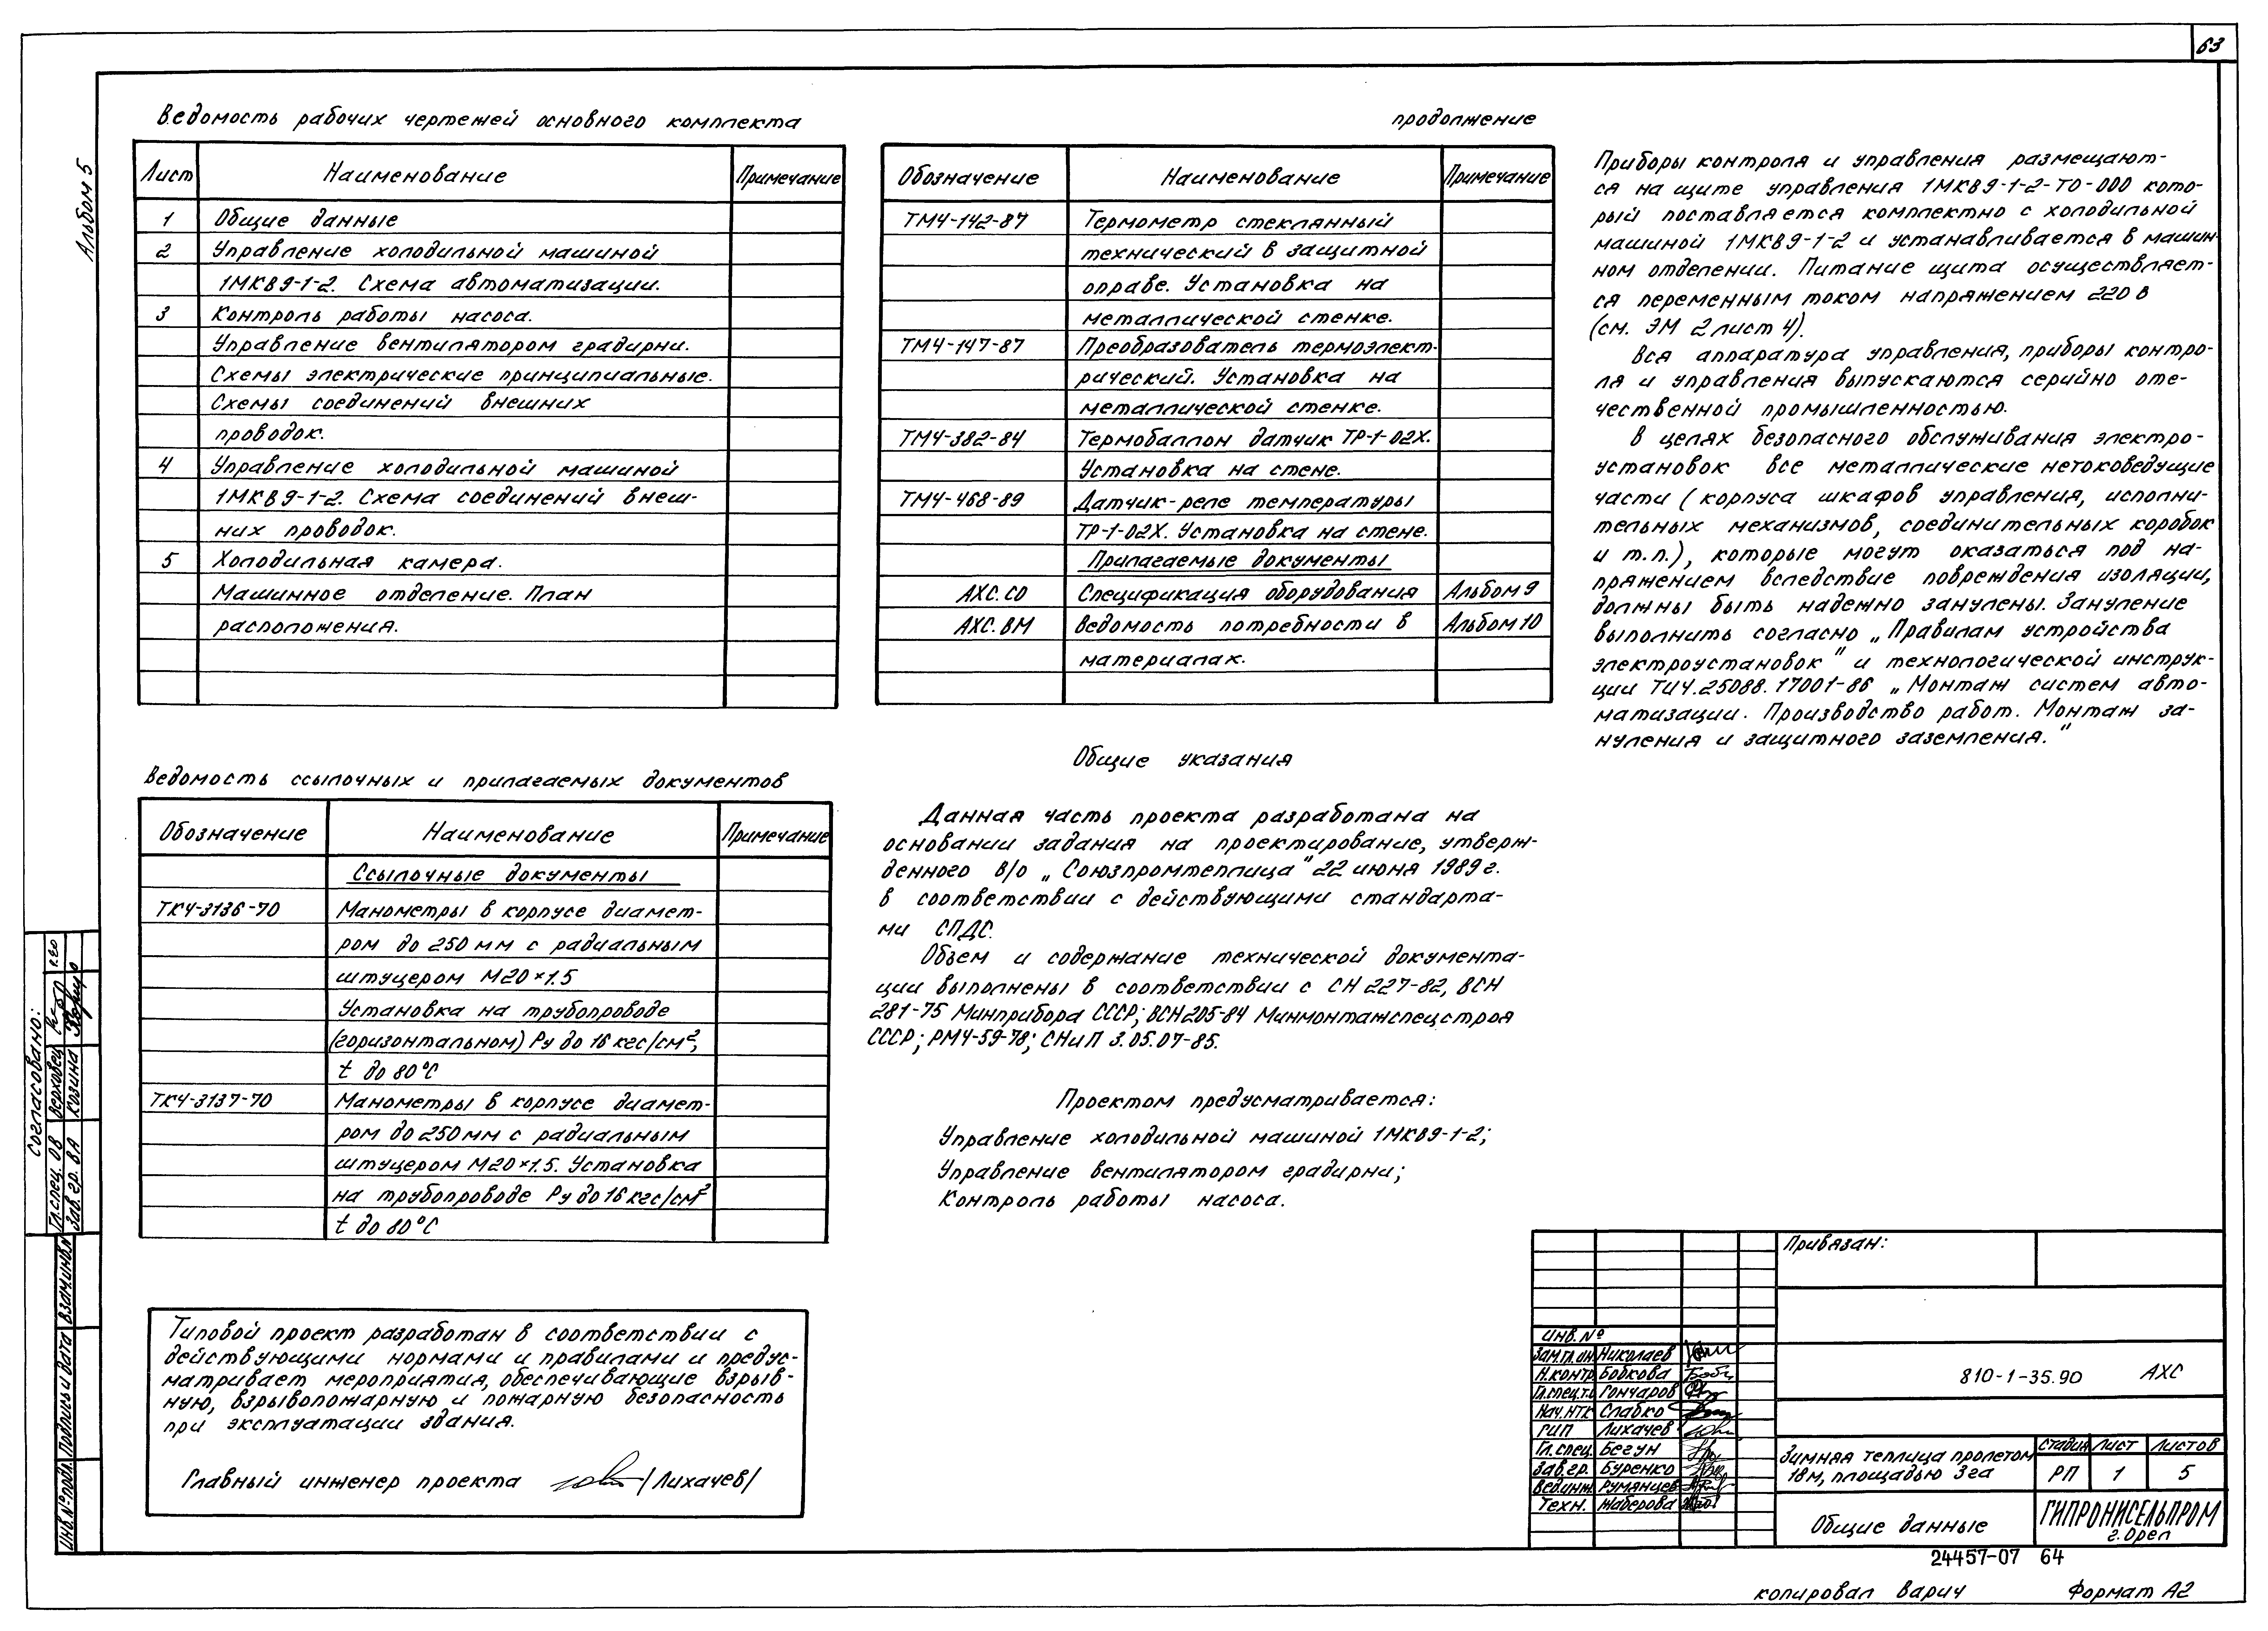 63
Альбом 5
Ведомость рабочих чертежей основного комплекта
Лист Наименование Примечание
1 Общие данные
2 Управление холодильной машиной
1МКВ9-1-2. Схема автоматизации.
3 Контроль работы насоса.
Управление вентилятором градирни.
Схемы электрические принципиальные.
Схемы соединений внешних
проводок.
4 Управление холодильной машиной
1МКВ9-1-2. Схема соединений внеш-
них проводок.
5 Холодильная камера.
Машинное отделение. План
расположения.
Ведомость ссылочных и прилагаемых документов
Обозначение Наименование Примечание
Ссылочные документы
ТК4-3136-70 Манометры в корпусе диамет-
ром до 250 мм с радиальным
штуцером М20×1.5
Установка на трубопроводе
(горизонтальном) Ру до 16 кгс/см²,
t до 80°С
ТК4-3137-70 Манометры в корпусе диамет-
ром до 250мм с радиальным
штуцером М20×1.5. Установка
на трубопроводе Ру до 16 кгс/см²
t до 80°С
Типовой проект разработан в соответствии с
действующими нормами и правилами и предус-
матривает мероприятия, обеспечивающие взрыв-
ную, взрывопожарную и пожарную безопасность
при эксплуатации здания.
Главный инженер проекта /Лихачев/
продолжение
Обозначение Наименование Примечание
ТМ4-142-87 Термометр стеклянный
технический в защитной
оправе. Установка на
металлической стенке.
ТМ4-147-87 Преобразователь термоэлект-
рический. Установка на
металлической стенке.
ТМ4-382-84 Термобаллон датчик ТР-1-02Х.
Установка на стене.
ТМ4-468-89 Датчик-реле температуры
ТР-1-02Х. Установка на стене.
Прилагаемые документы
АХС.СО Спецификация оборудования Альбом 9
АХС.ВМ Ведомость потребности в Альбом 10
материалах.
Общие указания
Данная часть проекта разработана на
основании задания на проектирование, утверж-
денного в/о „Союзпромтеплица" 22 июня 1989 г.
в соответствии с действующими стандарта-
ми СПДС.
Объем и содержание технической документа-
ции выполнены в соответствии с СН 227-82, ВСН
281-75 Минприбора СССР; ВСН205-84 Минмонтажспецстроя
СССР; РМ4-59-78; СНиП 3.05.07-85.
Проектом предусматривается:
Управление холодильной машиной 1МКВ9-1-2;
Управление вентилятором градирни;
Контроль работы насоса.
Приборы контроля и управления размещают-
ся на щите управления 1МКВ9-1-2-ТО-000 кото-
рый поставляется комплектно с холодильной
машиной 1МКВ9-1-2 и устанавливается в машин-
ном отделении. Питание щита осуществляет-
ся переменным током напряжением 220 в
(см. ЭМ 2 лист 4).
Вся аппаратура управления, приборы контро-
ля и управления выпускаются серийно оте-
чественной промышленностью.
В целях безопасного обслуживания электро-
установок все металлические нетоковедущие
части (корпуса шкафов управления, исполни-
тельных механизмов, соединительных коробок
и т.п.), которые могут оказаться под на-
пряжением вследствие повреждения изоляции,
должны быть надежно занулены. Зануление
выполнить согласно „Правилам устройства
электроустановок" и технологической инструк-
ции ТИ4.25088.17001-86 „Монтаж систем авто-
матизации. Производство работ. Монтаж за-
нуления и защитного заземления."
Согласовано:
Гл.спец. ОВ Верховец
Зав. гр. ВА Козина
Инв.№подл. Подпись и дата Взам.инв.№
Привязан:
Инв.№
Зам.гл.ин Николаев
Н.контр. Бобкова
Гл.спец.т.о Гончаров
Нач.НТК Слабко
ГИП Лихачев
Гл.спец. Бегун
Зав.гр. Буренко
Вед.инж. Румянцев
Техн. Жаберова
810-1-35.90 АХС
Зимняя теплица пролетом
18м, площадью 3га
Стадия Лист Листов
РП 1 5
Общие данные
ГИПРОНИСЕЛЬПРОМ
г. Орел
24457-07 64
Копировал Варич Формат А2